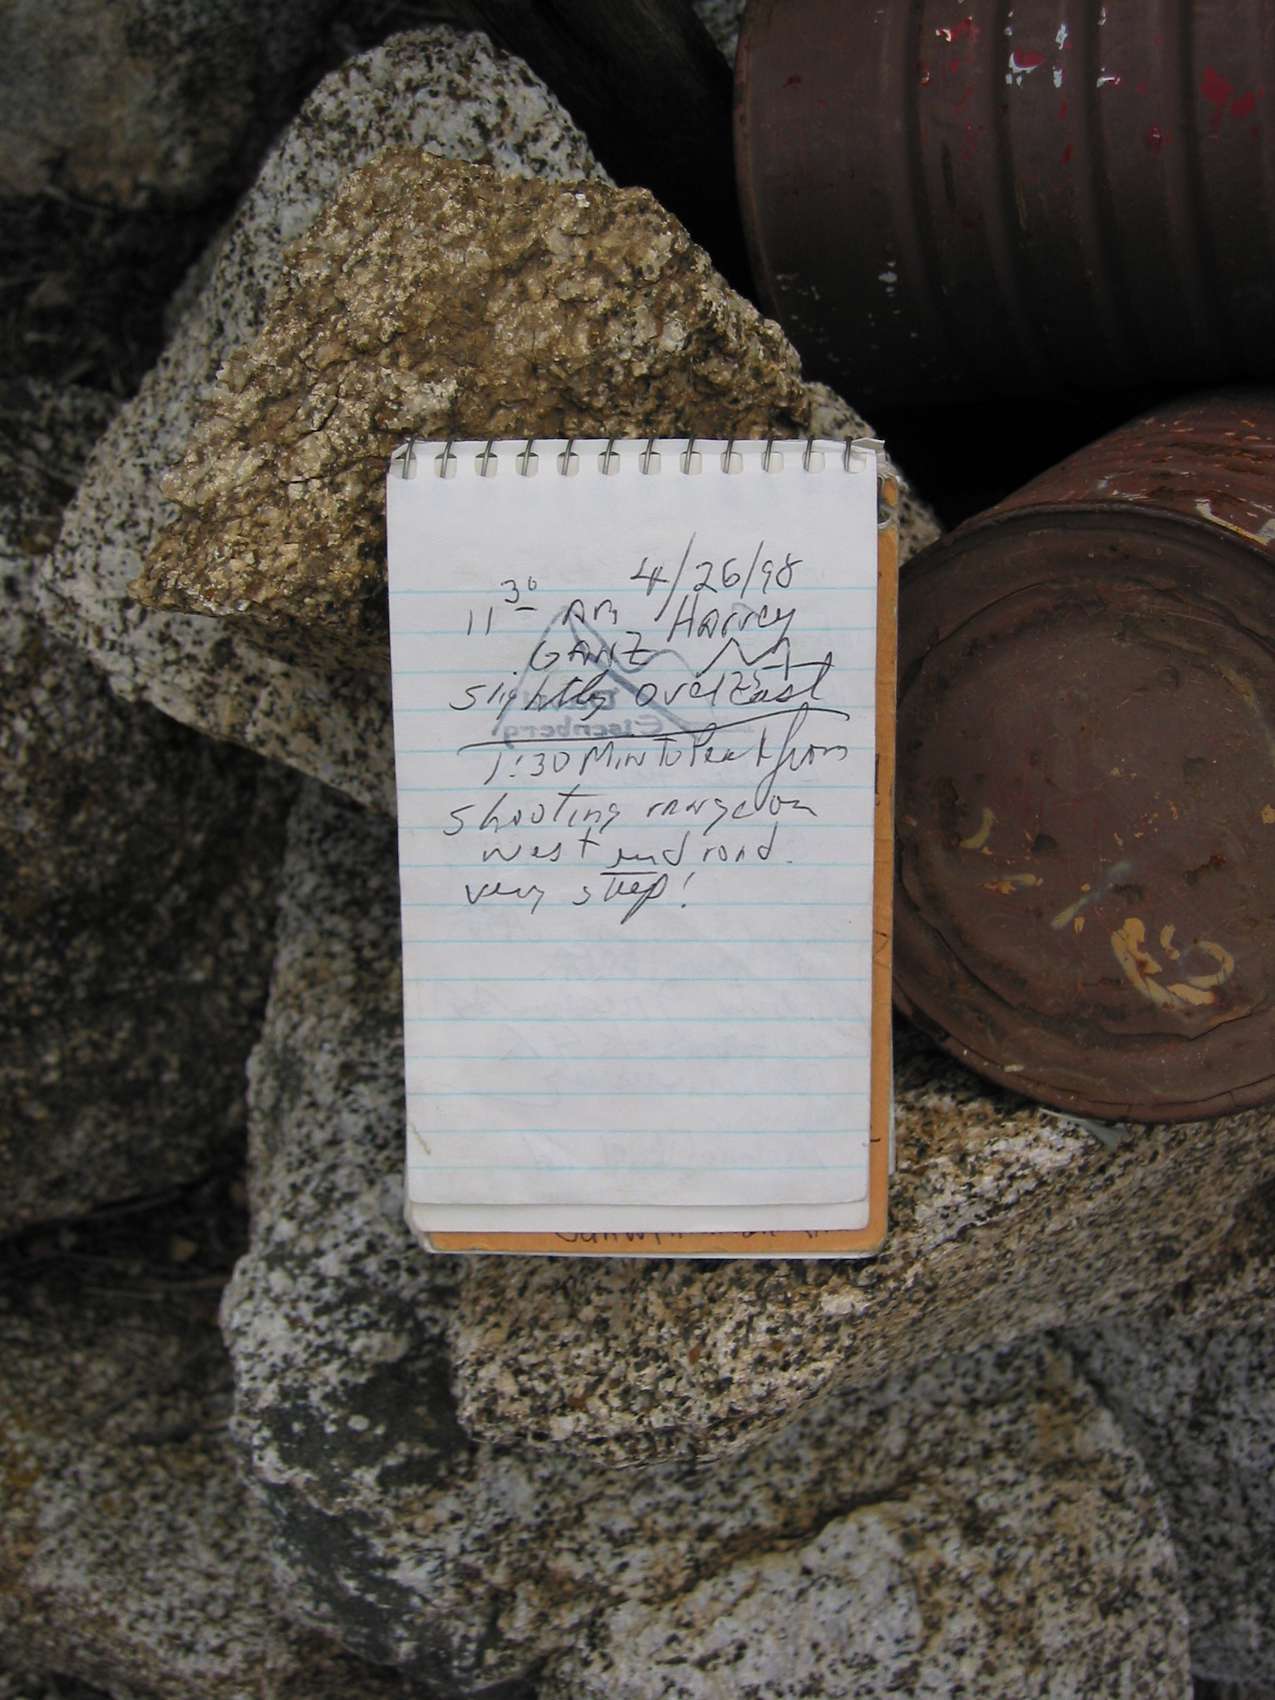 4/26/98
11 30 AM Harvey
GANZ
slightly overcast
1:30 Min to Peak from
shooting range on
west end road.
very steep!
Eisenberg